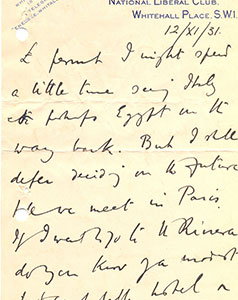 NATIONAL LIBERAL CLUB,
WHITEHALL PLACE, S.W.1.
12/XI/31.
permit I might spend
a little time seeing Italy
perhaps Egypt on the
way back. But I shall
defer deciding on the future
we meet in Paris.
If I want to go to the Riviera
do you know of a modest
hotel